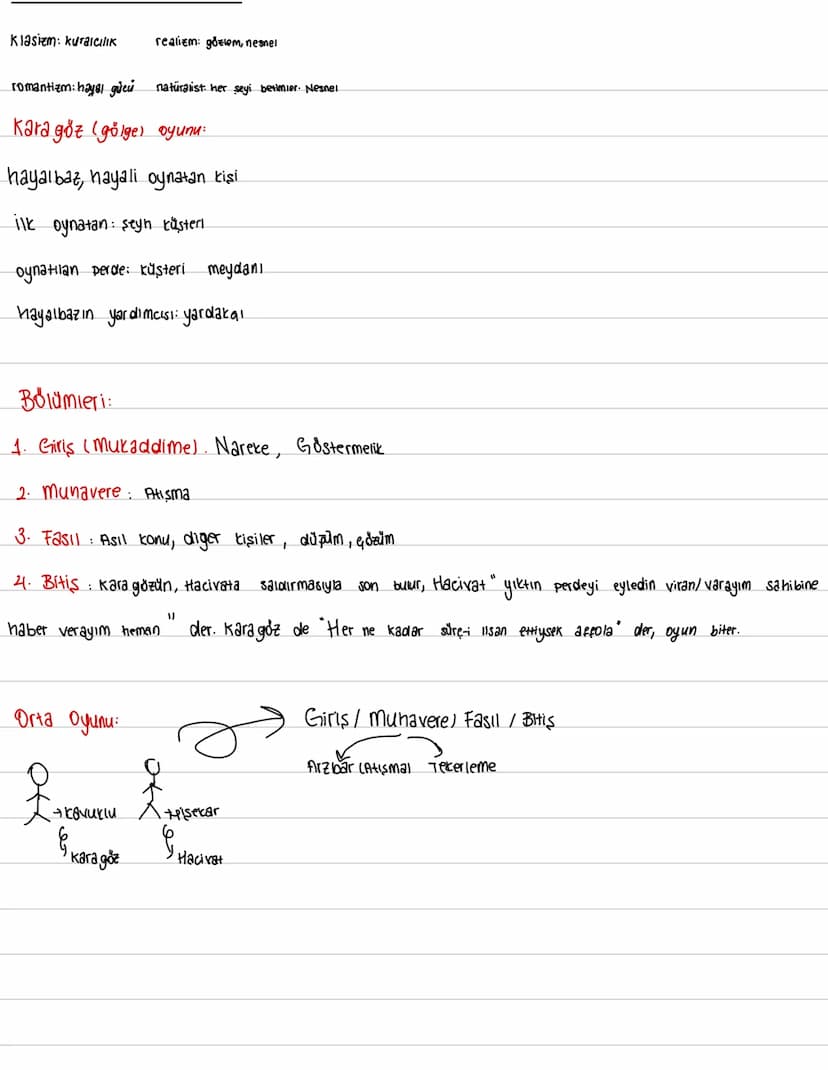 Klasizm: kuralcılık realizm: gözlem, nesnel
romantizm: hayal gücü natüralist: her şeyi betimler. Nesnel
Karagöz (gölge) oyunu:
hayalbaz, hayali oynatan kişi
İlk oynatan: şeyh küşteri
oynatılan perde: küşteri meydanı
hayalbazın yardımcısı: yardakçı
Bölümleri:
1. Giriş (Mukaddime). Nareke, Göstermelik
2. Muhavere: Atışma
3. Fasıl: Asıl konu, diğer kişiler, düğüm, çözüm
4. Bitiş: Karagözün, Hacivata saldırmasıyla son bulur, Hacivat "yıktın perdeyi eyledin viran/ varayım sahibine
haber verayım heman" der. Karagöz de "Her ne kadar sürç-i lisan ettiysek affola" der, oyun biter.
Orta Oyunu: Giriş / Muhavere / Fasıl / Bitiş
Arzbar (Atışma) Tekerleme
→ kavuklu → pişekar
Karagöz Hacivat